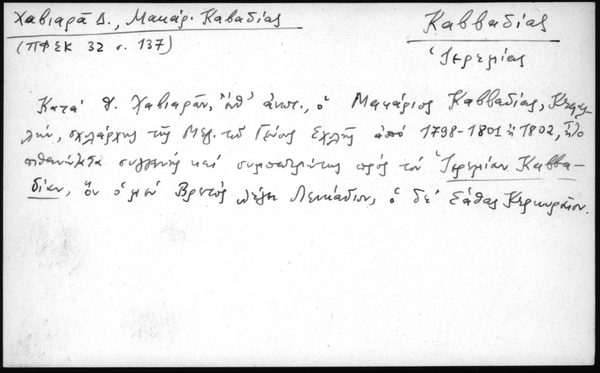 Χαβιαρᾶ Δ., Μακάρ. Καβαδίας
(ΠΦΣΚ 32 σ. 137)
Καββαδίας
Ἱερεμίας
Κατὰ Δ. Χαβιαρᾶν, ἔνθ' ἀνωτ., ὁ Μακάριος Καββαδίας, Κεφαλ-
λήν, σχολάρχης τῆς Μεγ. τοῦ Γένους Σχολῆς ἀπὸ 1798-1801 ἢ 1802, ἦτο
πιθανώτατα συγγενὴς καὶ συμπατριώτης πρὸς τὸν Ἱερεμίαν Καββα-
δίαν, ὃν ὁ μὲν Βρετὸς λέγει Λευκάδιον, ὁ δὲ Σάθας Κερκυραῖον.